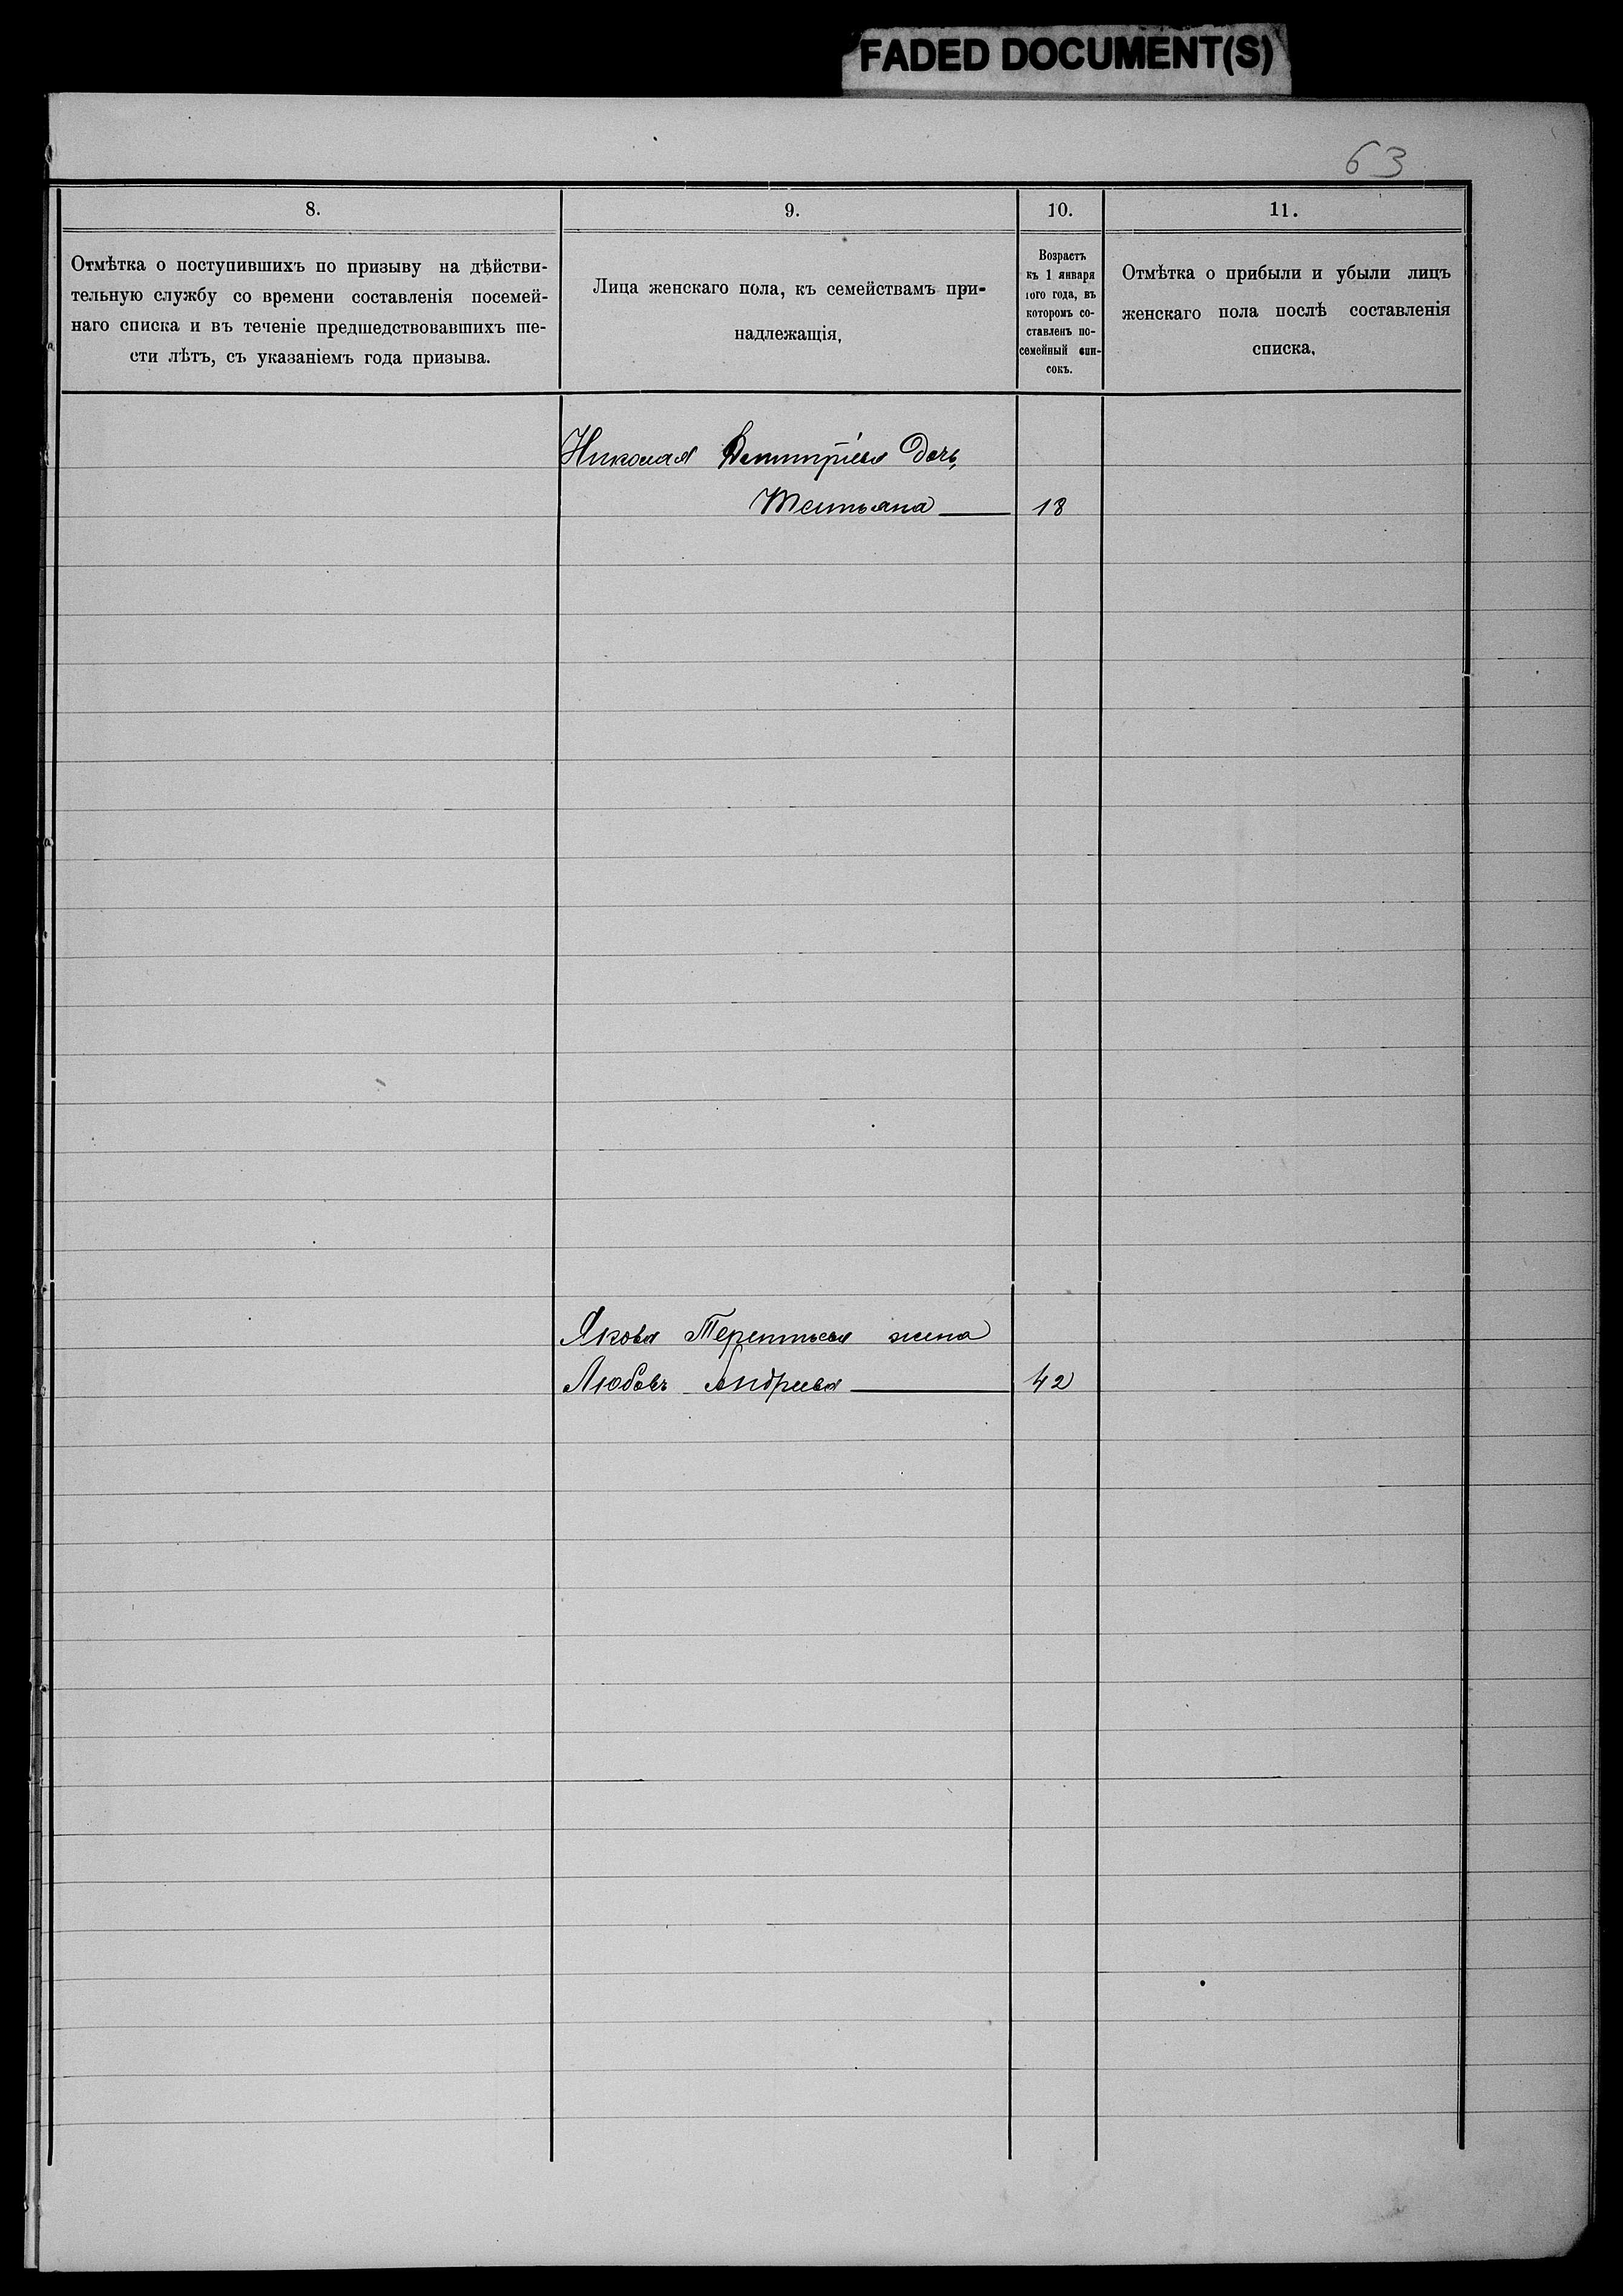 FADED DOCUMENT(S)
63
8.
9.
10.
11.
Отмѣтка о поступившихъ по призыву на дѣйстви-
тельную службу со времени составленія посемей-
наго списка и въ теченіе предшедствовавшихъ ше-
сти лѣтъ, съ указаніемъ года призыва.
Лица женскаго пола, къ семействамъ при-
надлежащія,
Возрастъ
къ 1 января
того года, въ
которомъ со-
ставленъ по-
семейный спи-
сокъ.
Отмѣтка о прибыли и убыли лицъ
женскаго пола послѣ составленія
списка,
Николая Дмитріева дочь,
Татьяна 18
Якова Терентьева жена
Любовь Андреева 42